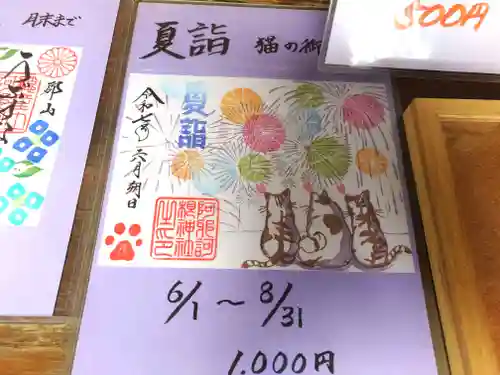 月末まで
郡山
夏詣 猫の御
夏詣
令和七年
六月朔日
阿邪訶
根神社
之印
6/1 〜 8/31
1,000円
500円